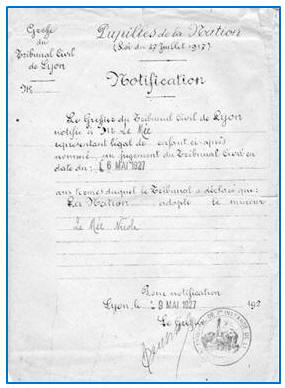 Greffe
du
Tribunal Civil
de Lyon
Pupilles de la Nation
(Loi du 27 Juillet 1917)
Notification
Le Greffier du Tribunal Civil de Lyon
notifie à Mr Le Mée
représentant légal de l'enfant ci-après
nommé un jugement du Tribunal Civil en
date du : 6 MAI 1927
aux termes duquel le Tribunal a déclaré que :
La Nation adopte le mineur
Le Mée Nicole
Pour notification
Lyon, le 9 MAI 1927 192
Le Greffier